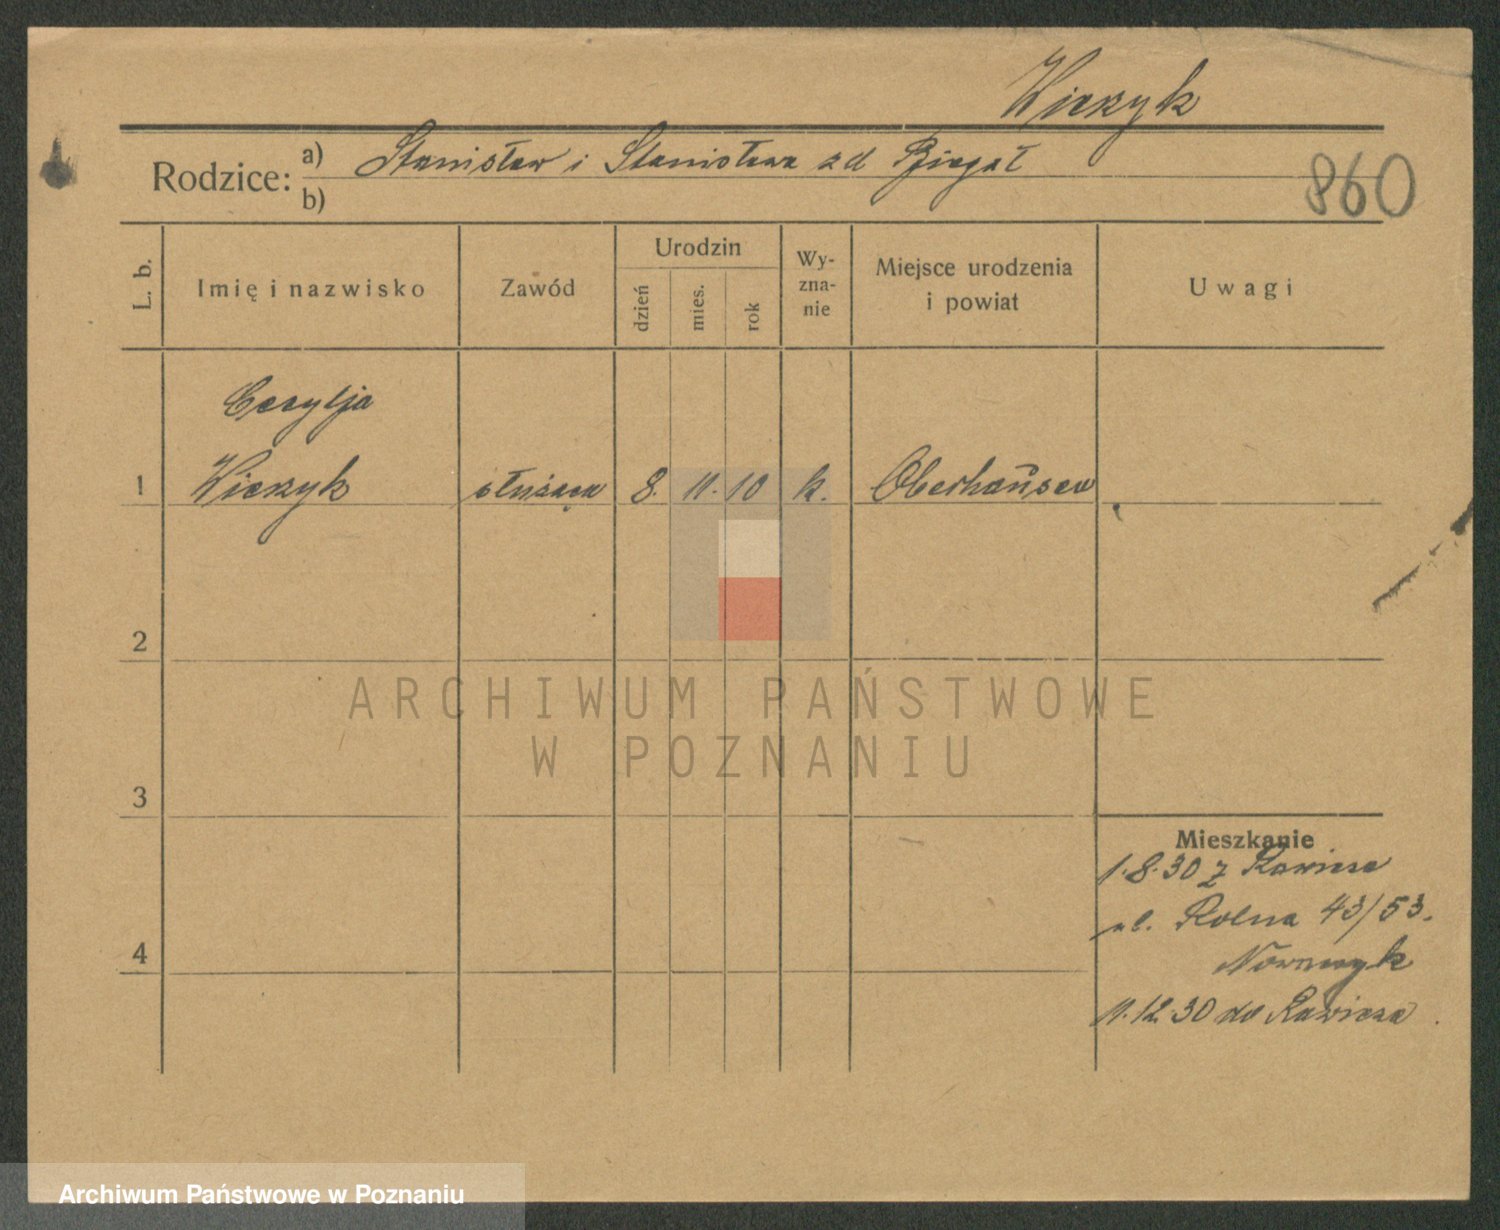 Wiczyk
Rodzice: a) Stanisław i Stanisława zd Biegał
b)
860
L. b.
Imię i nazwisko
Zawód
Urodzin
dzień
mies.
rok
Wy-
zna-
nie
Miejsce urodzenia
i powiat
Uwagi
Cecylja
1 Wiczyk służąca 8. 11. 10 k. Oberhausen
2
ARCHIWUM PAŃSTWOWE
W POZNANIU
3
Mieszkanie
1.8.30 z Rawicza
ul. Rolna 43/53.
4
Nowaczyk
11.12.30 do Rawicza.
Archiwum Państwowe w Poznaniu